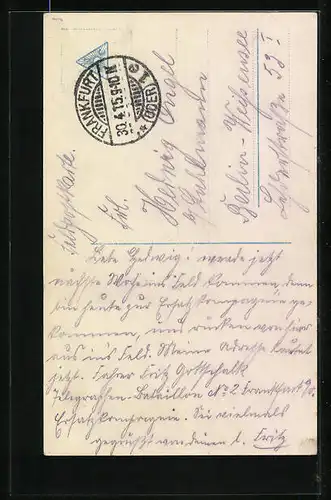 FRANKFURT
30.4.15.9-10N.
(ODER) 1 e
Feldpostkarte.
Frl.
Hedwig Engel
Berlin-Weißensee
53 I
Liebe Hedwig! werde jetzt
nächste Woche ins Feld kommen, denn
bin heute zur Ersatz Kompagnie ge-
kommen, und rücken von hier
aus ins Feld. Meine Adresse lautet
jetzt. Fahrer Fritz Gottschalk
Telegrafen-Bataillon No 2. Frankfurt a/O.
Ersatzkompagnie. Sei vielmals
gegrüßt von deinem l. Fritz